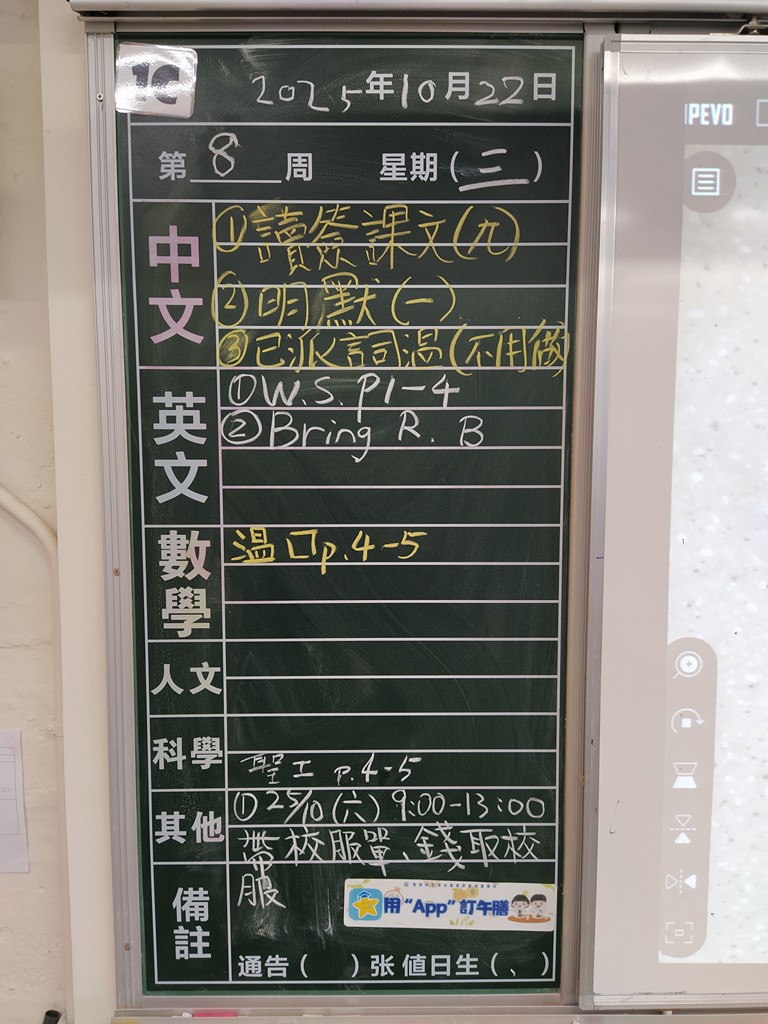 1C
2025年10月22日
第8周 星期(三)
中文
①讀簽課文(九)
②明默(一)
③已派詞溫(不用做)
英文
①W.S. P1-4
②Bring R.B
數學
溫口p.4-5
人文
科學
聖工 p.4-5
其他
①25/10(六) 9:00-13:00
帶校服單、錢取校
服
備註
用“App”訂午膳
通告( )张 值日生(、)
IPEVO